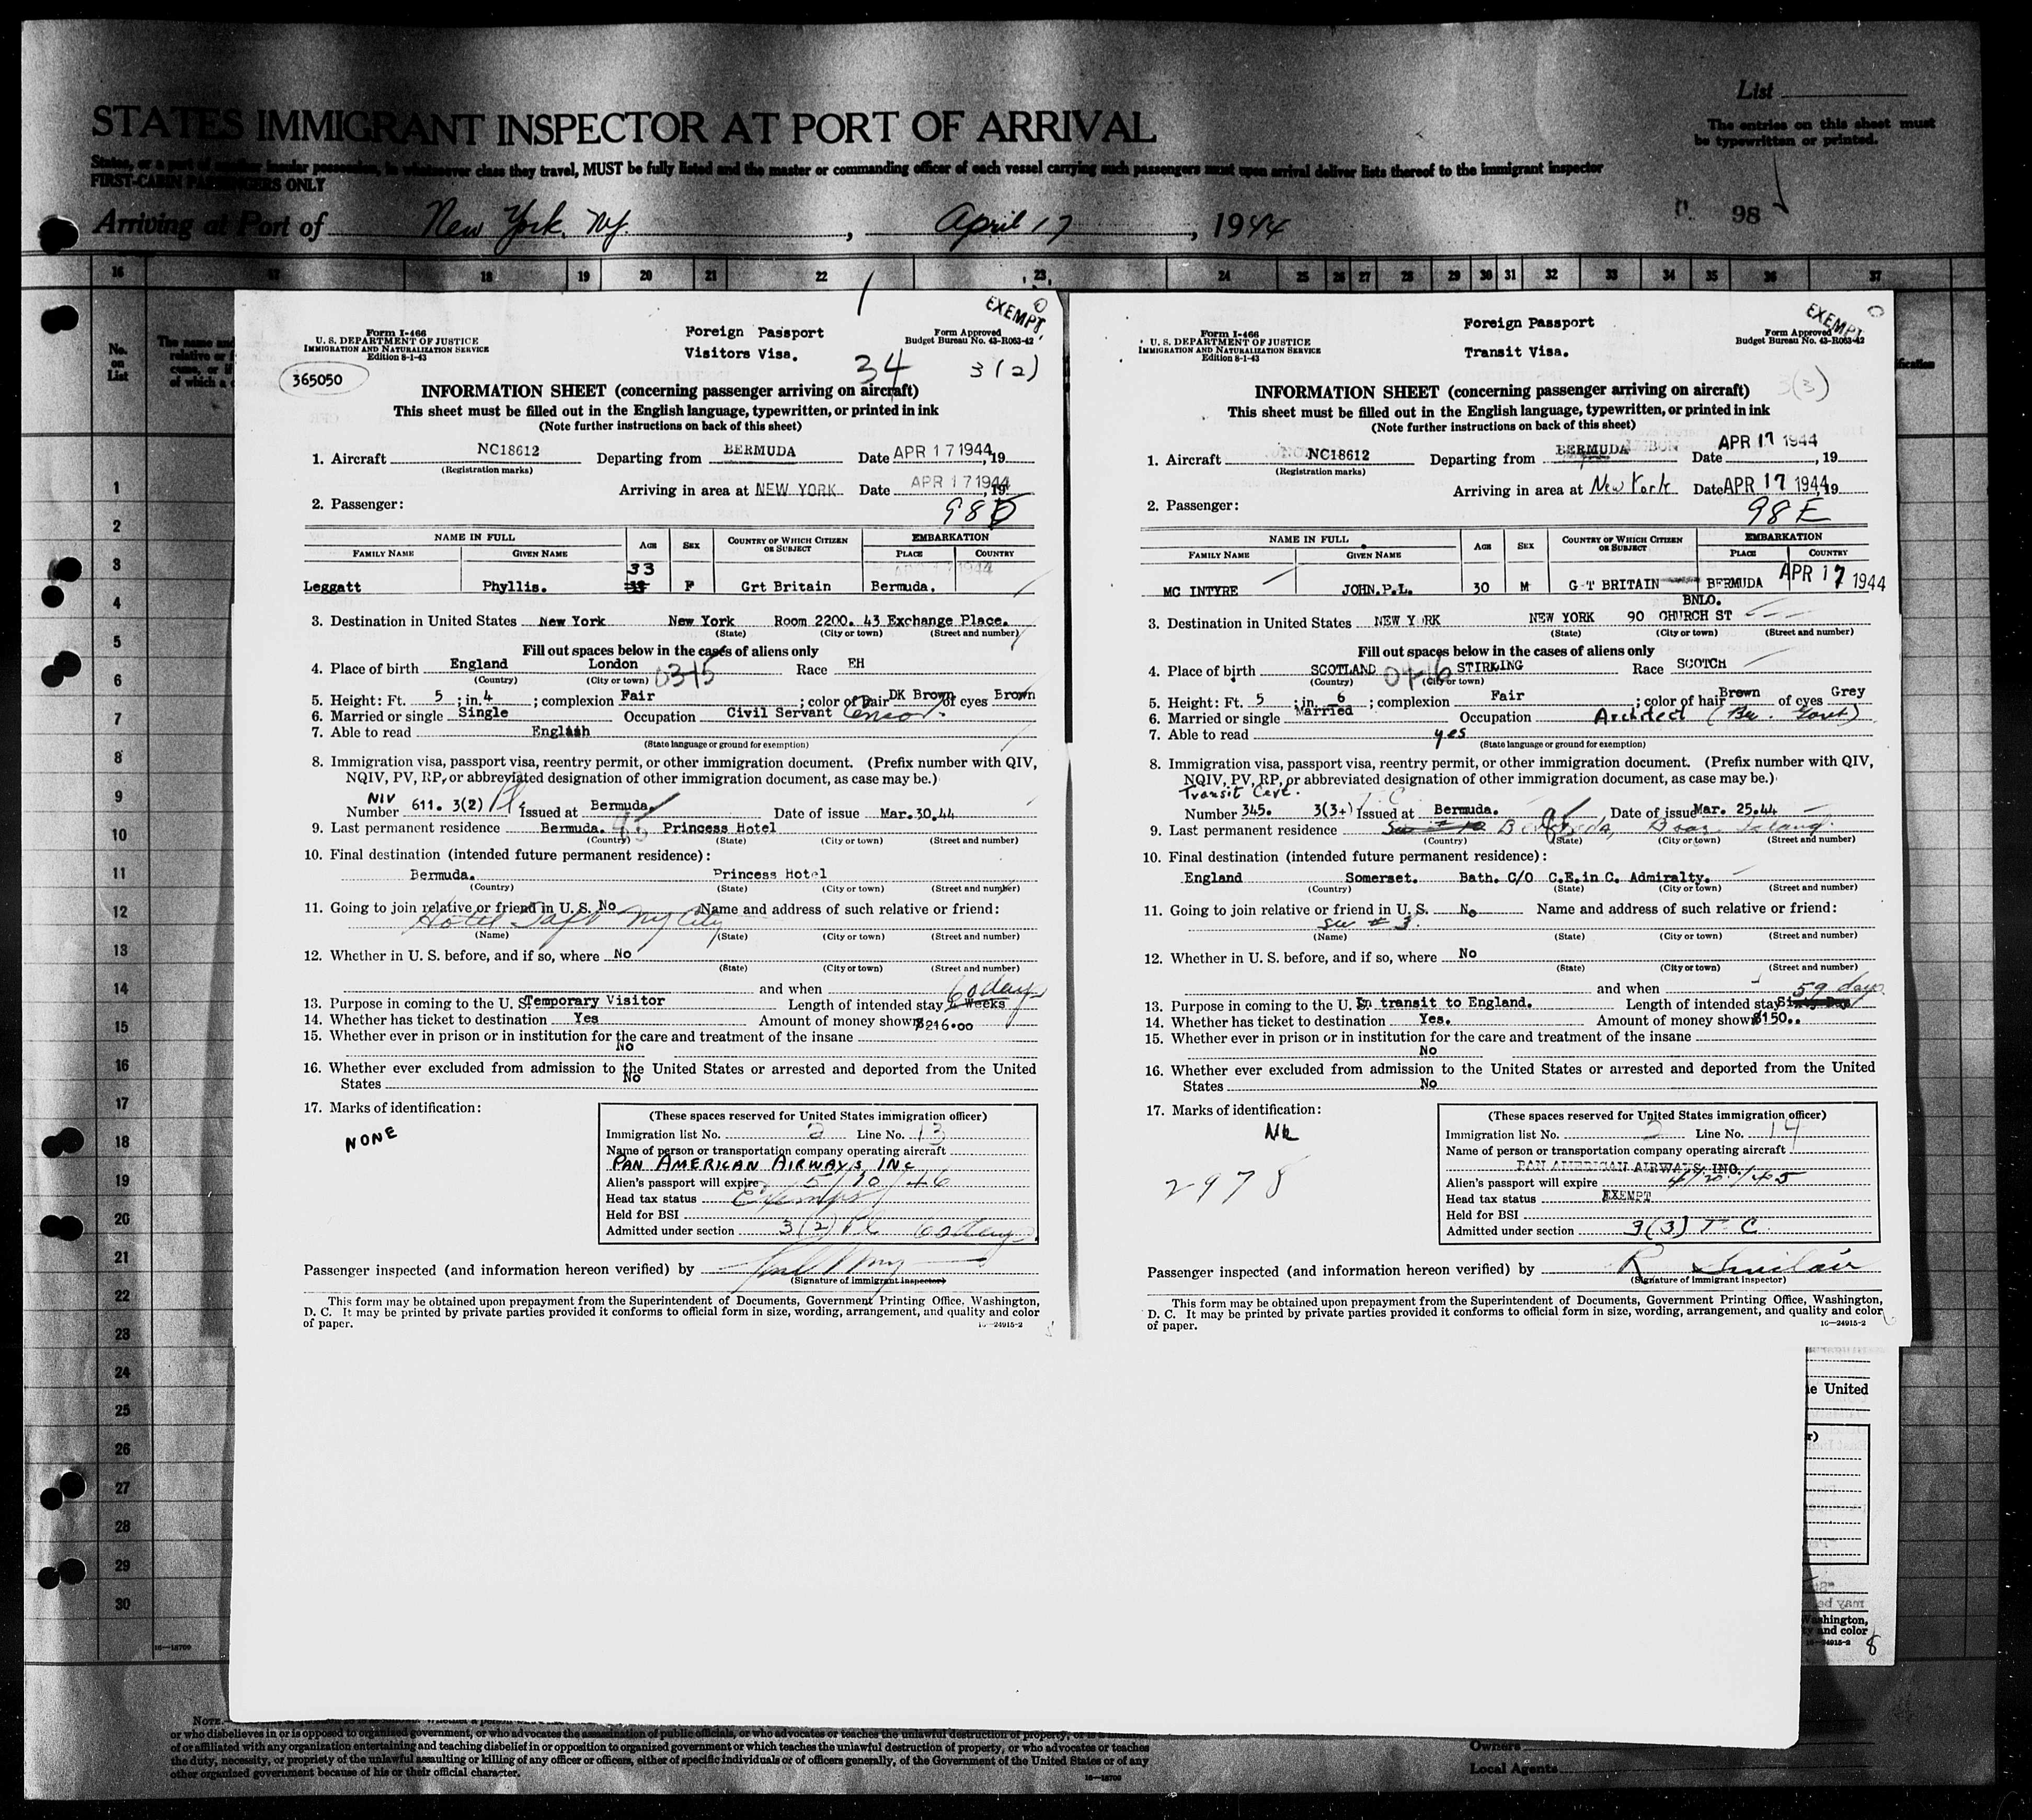 List
STATES IMMIGRANT INSPECTOR AT PORT OF ARRIVAL
The entries on this sheet must
be typewritten or printed.
States, or a part of another insular possession, in whatsoever class they travel, MUST be fully listed and the master or commanding officer of each vessel carrying such passengers must upon arrival deliver lists thereof to the immigrant inspector
FIRST-CABIN PASSENGERS ONLY
Arriving at Port of New York, NY. , April 17 , 1944
98
16 17 18 19 20 21 22 23 24 25 26 27 28 29 30 31 32 33 34 35 36 37
No.
on
List
1
2
3
4
5
6
7
8
9
10
11
12
13
14
15
16
17
18
19
20
21
22
23
24
25
26
27
28
29
30
16—18700
EXEMPT
Form I-466
U. S. DEPARTMENT OF JUSTICE
IMMIGRATION AND NATURALIZATION SERVICE
Edition 8-1-43
Foreign Passport
Visitors Visa.
Form Approved
Budget Bureau No. 43-R063-42
365050
34
3(2)
INFORMATION SHEET (concerning passenger arriving on aircraft)
This sheet must be filled out in the English language, typewritten, or printed in ink
(Note further instructions on back of this sheet)
1. Aircraft NC18612 Departing from BERMUDA Date APR 17 1944, 19
(Registration marks)
Arriving in area at NEW YORK Date APR 17 1944, 19
2. Passenger: 98D
NAME IN FULL AGE SEX COUNTRY OF WHICH CITIZEN OR SUBJECT EMBARKATION
FAMILY NAME GIVEN NAME PLACE COUNTRY
33
Leggatt Phyllis. F Grt Britain Bermuda.
3. Destination in United States New York New York Room 2200. 43 Exchange Place.
(State) (City or town) (Street and number)
Fill out spaces below in the cases of aliens only
4. Place of birth England London 0345 Race EH
(Country) (City or town)
5. Height: Ft. 5 ; in. 4 ; complexion Fair ; color of hair DK Brown of eyes Brown
6. Married or single Single Occupation Civil Servant Censor.
7. Able to read English
(State language or ground for exemption)
8. Immigration visa, passport visa, reentry permit, or other immigration document. (Prefix number with QIV,
NQIV, PV, RP, or abbreviated designation of other immigration document, as case may be.)
NIV
Number 611. 3(2) Issued at Bermuda. Date of issue Mar.30.44
9. Last permanent residence Bermuda. Princess Hotel
(Country) (State) (City or town) (Street and number)
10. Final destination (intended future permanent residence):
Bermuda. Princess Hotel
(Country) (State) (City or town) (Street and number)
11. Going to join relative or friend in U. S. No Name and address of such relative or friend:
Hotel Taft NY City
(Name) (State) (City or town) (Street and number)
12. Whether in U. S. before, and if so, where No
(State) (City or town) (Street and number)
and when
13. Purpose in coming to the U. S. Temporary Visitor Length of intended stay 60 days Weeks
14. Whether has ticket to destination Yes Amount of money shown $216.00
15. Whether ever in prison or in institution for the care and treatment of the insane
No
16. Whether ever excluded from admission to the United States or arrested and deported from the United
States No
17. Marks of identification:
NONE
(These spaces reserved for United States immigration officer)
Immigration list No. 2 Line No. 13
Name of person or transportation company operating aircraft
PAN AMERICAN AIRWAYS INC
Alien's passport will expire 5/10/46
Head tax status Exempt
Held for BSI
Admitted under section 3(2) 60 days
Passenger inspected (and information hereon verified) by
(Signature of immigrant inspector)
This form may be obtained upon prepayment from the Superintendent of Documents, Government Printing Office, Washington,
D. C. It may be printed by private parties provided it conforms to official form in size, wording, arrangement, and quality and color
of paper.
16—24915-2
EXEMPT
Form I-466
U. S. DEPARTMENT OF JUSTICE
IMMIGRATION AND NATURALIZATION SERVICE
Edition 8-1-43
Foreign Passport
Transit Visa.
Form Approved
Budget Bureau No. 43-R063-42
3(3)
INFORMATION SHEET (concerning passenger arriving on aircraft)
This sheet must be filled out in the English language, typewritten, or printed in ink
(Note further instructions on back of this sheet)
1. Aircraft NC18612 Departing from BERMUDA Date APR 17 1944, 19
(Registration marks)
Arriving in area at New York Date APR 17 1944, 19
2. Passenger: 98E
NAME IN FULL AGE SEX COUNTRY OF WHICH CITIZEN OR SUBJECT EMBARKATION
FAMILY NAME GIVEN NAME PLACE COUNTRY
MC INTYRE JOHN.P.L. 30 M G T BRITAIN BERMUDA APR 17 1944
BNLO.
3. Destination in United States NEW Y RK NEW YORK 90 CHURCH ST
(State) (City or town) (Street and number)
Fill out spaces below in the cases of aliens only
4. Place of birth SCOTLAND 0416 STIRLING Race SCOTCH
(Country) (City or town)
5. Height: Ft. 5 ; in. 6 ; complexion Fair ; color of hair Brown of eyes Grey
6. Married or single Married Occupation Architect (Br. Govt)
7. Able to read yes
(State language or ground for exemption)
8. Immigration visa, passport visa, reentry permit, or other immigration document. (Prefix number with QIV,
NQIV, PV, RP, or abbreviated designation of other immigration document, as case may be.)
Transit Cert.
Number 345. 3(3+) T.C Issued at Bermuda. Date of issue Mar. 25.44
9. Last permanent residence Bermuda, Boaz Island.
(Country) (State) (City or town) (Street and number)
10. Final destination (intended future permanent residence):
England Somerset. Bath. C/O C.E.in C. Admiralty.
(Country) (State) (City or town) (Street and number)
11. Going to join relative or friend in U. S. No Name and address of such relative or friend:
See # 3.
(Name) (State) (City or town) (Street and number)
12. Whether in U. S. before, and if so, where No
(State) (City or town) (Street and number)
and when
13. Purpose in coming to the U. S. In transit to England. Length of intended stay 59 days Sixty Days
14. Whether has ticket to destination Yes. Amount of money shown $150..
15. Whether ever in prison or in institution for the care and treatment of the insane
No
16. Whether ever excluded from admission to the United States or arrested and deported from the United
States No
17. Marks of identification:
2978
(These spaces reserved for United States immigration officer)
Immigration list No. 2 Line No. 14
Name of person or transportation company operating aircraft
PAN AMERICAN AIRWAYS, INC.
Alien's passport will expire 4/20/45
Head tax status EXEMPT
Held for BSI
Admitted under section 3(3) T C
Passenger inspected (and information hereon verified) by R Sinclair
(Signature of immigrant inspector)
This form may be obtained upon prepayment from the Superintendent of Documents, Government Printing Office, Washington,
D. C. It may be printed by private parties provided it conforms to official form in size, wording, arrangement, and quality and color
of paper.
16—24915-2
e United
Washington,
y and color
16—24915-2
8
NOTE.—
or who disbelieves in or is opposed to organized government, or who advocates the assassination of public officials, or who advocates or teaches the unlawful destruction of property, or is a
of or affiliated with any organization entertaining and teaching disbelief in or opposition to organized government or which teaches the unlawful destruction of property, or who advocates or teaches
the duty, necessity, or propriety of the unlawful assaulting or killing of any officer or officers, either of specific individuals or of officers generally, of the Government of the United States or of any
other organized government because of his or their official character.
16—18700
Owners
Local Agents